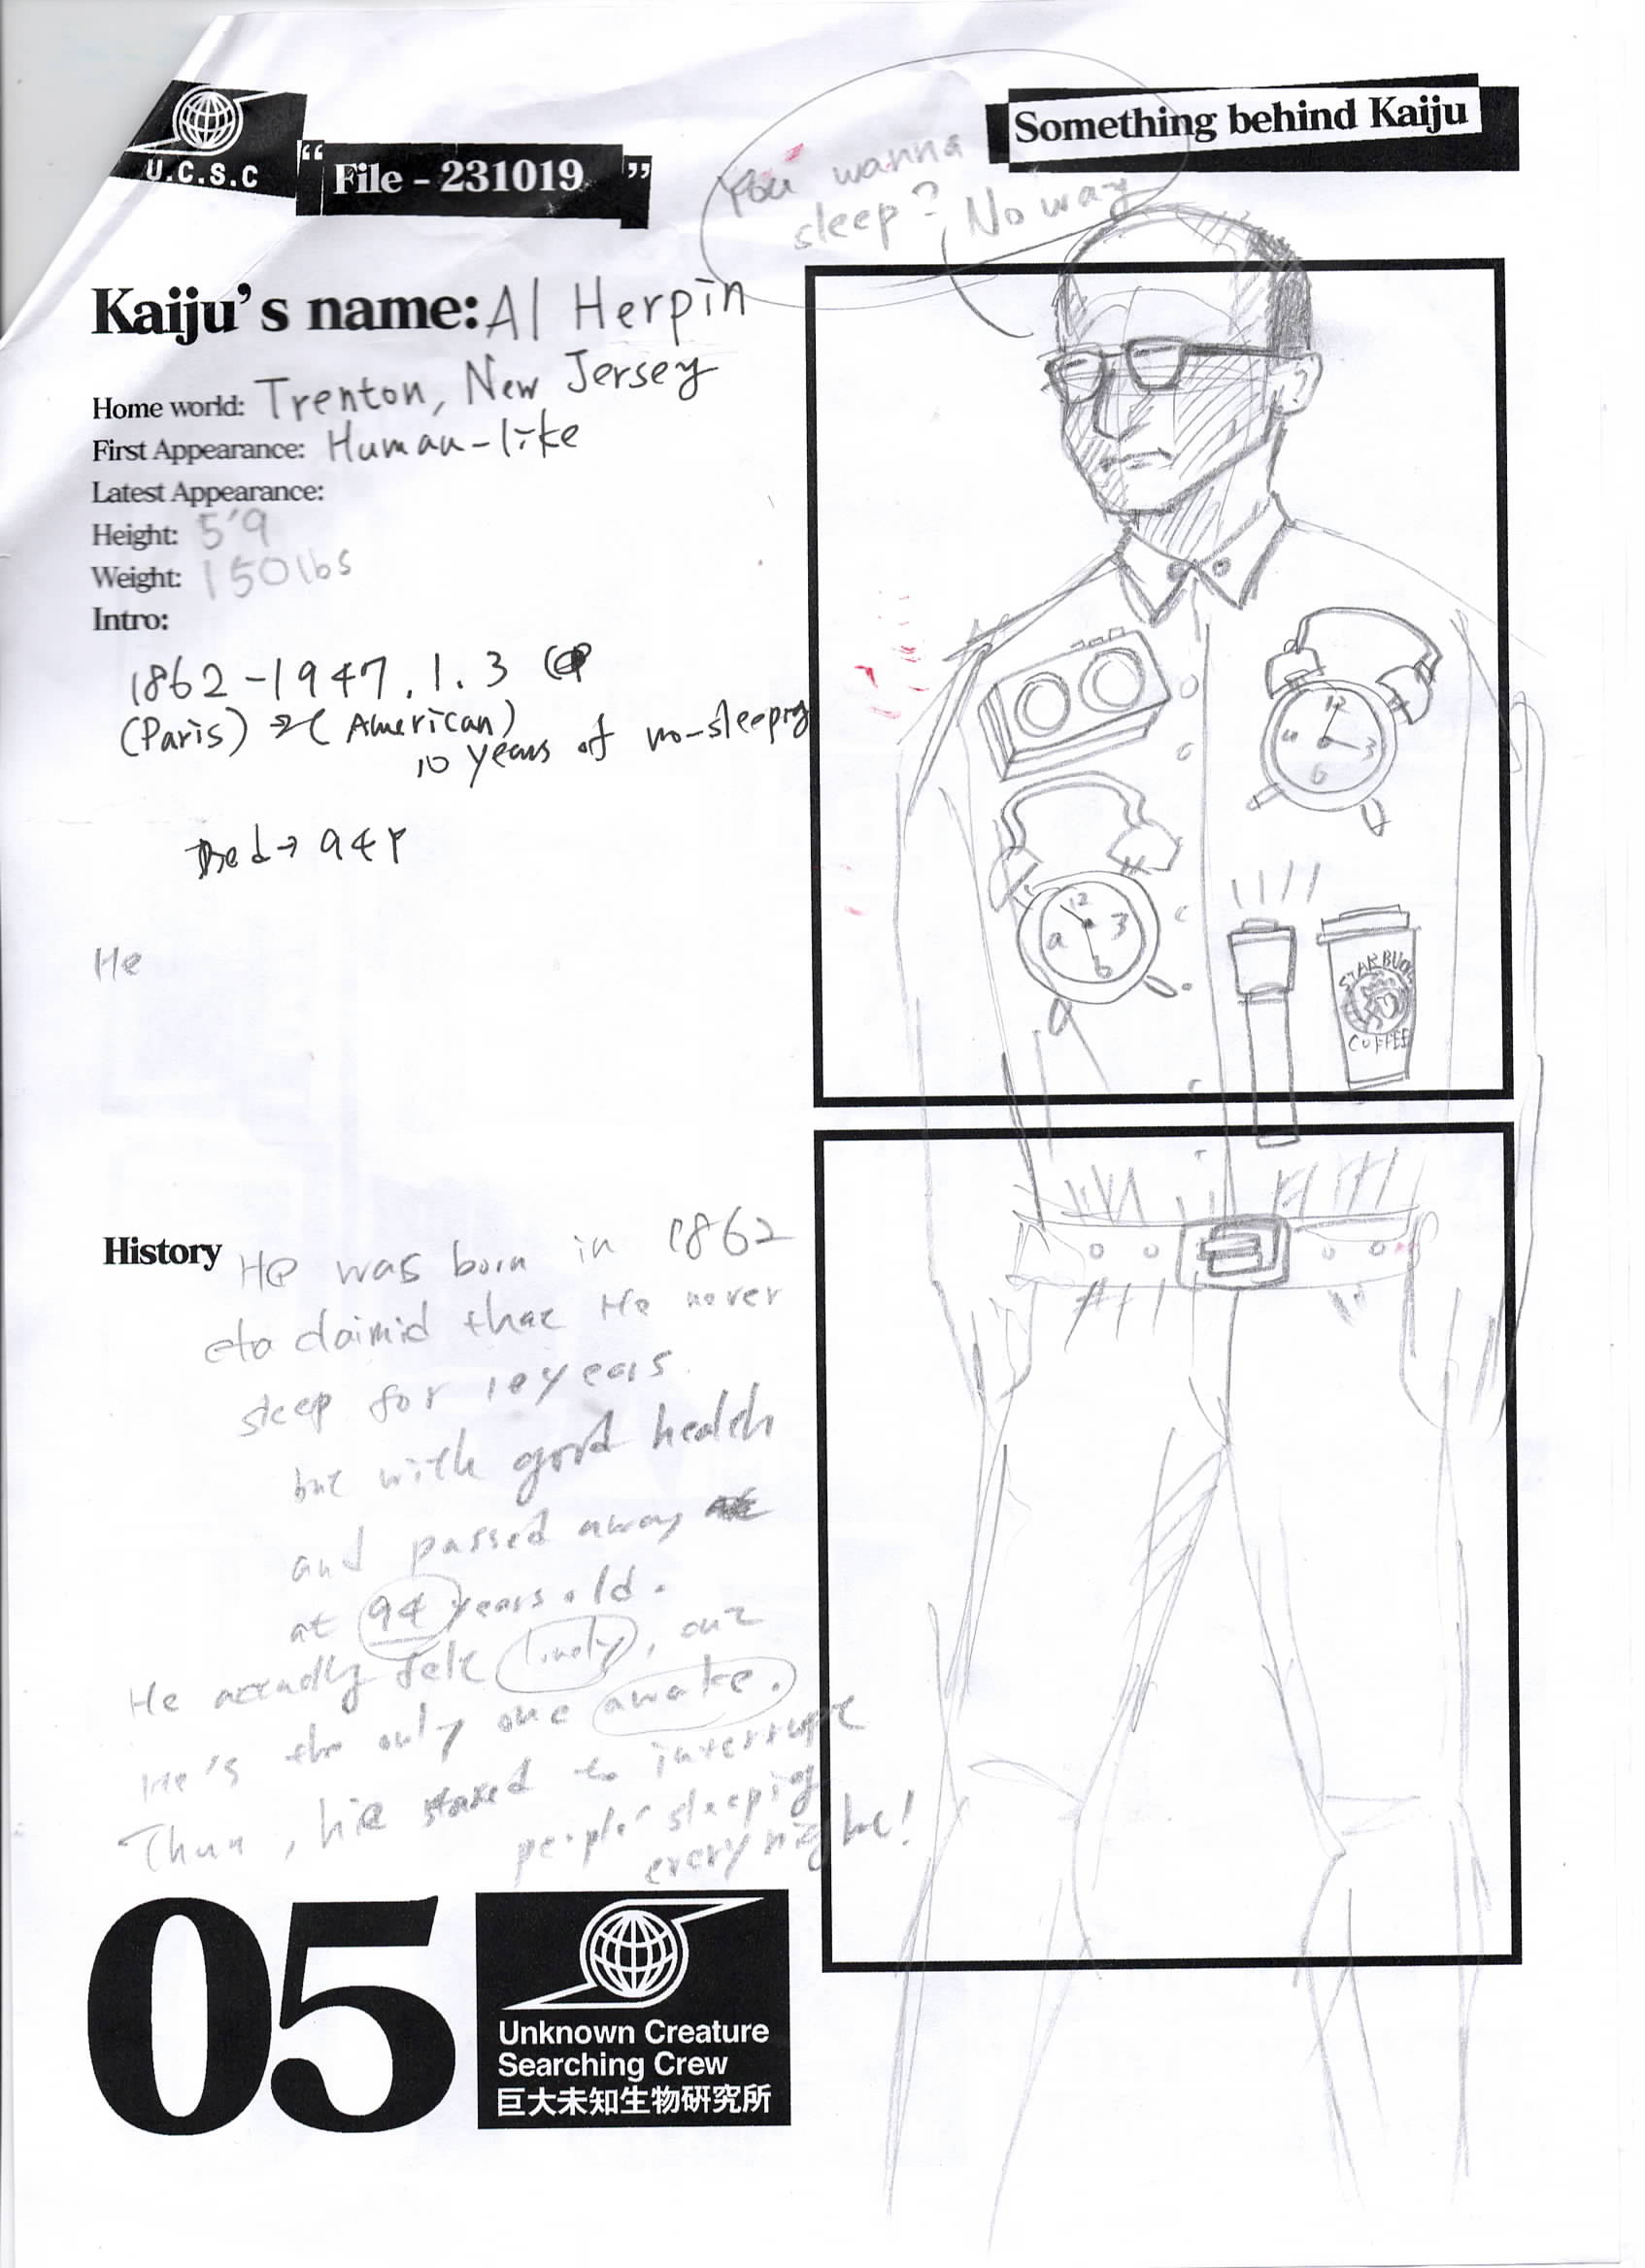 U.C.S.C
“ File - 231019 ”
Something behind Kaiju
You wanna
sleep? No way
Kaiju's name: Al Herpin
Home world: Trenton, New Jersey
First Appearance: Human-like
Latest Appearance:
Height: 5'9
Weight: 150lbs
Intro:
1862-1947.1.3
(Paris) (American)
10 years of no-sleeping
→ 94
He
12
3
6
9
12
3
6
STARBUCK
COFFEE
History He was born in 1862
claimid that He never
sleep for 10years.
but with good health
and passed away
at 94 years old.
He felt , but
He's the only one awake.
, he started to interrupt
people sleeping
every night!
05
Unknown Creature
Searching Crew
巨大未知生物研究所